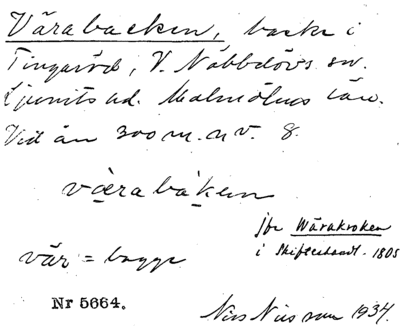 Värabacken, backe i
Tingaröd, V. Nöbbelövs sn.
Ljunits hd. Malmöhus län.
Vid ån 300 m. n v. 8.
värabáken
jfr Wärakroken
i Skifteshandl. 1805
vär = bagge
Nr 5664.
Nils Nilsson 1934.